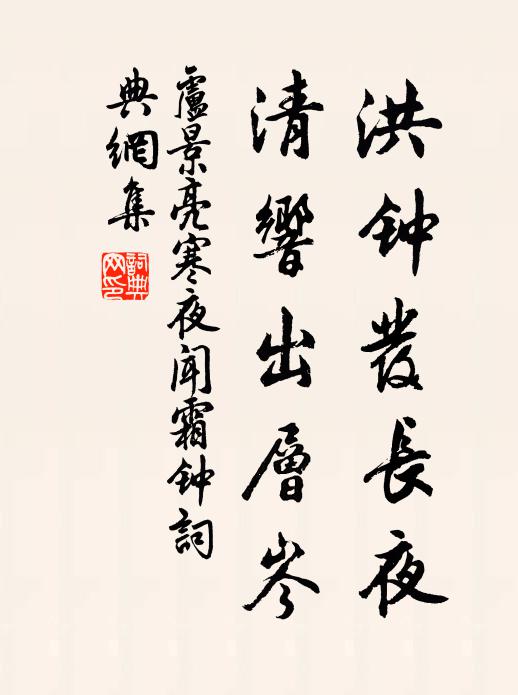 洪钟發長夜
清響出層岑
盧景亮寒夜闻霜钟詞
典網集
詞典网印